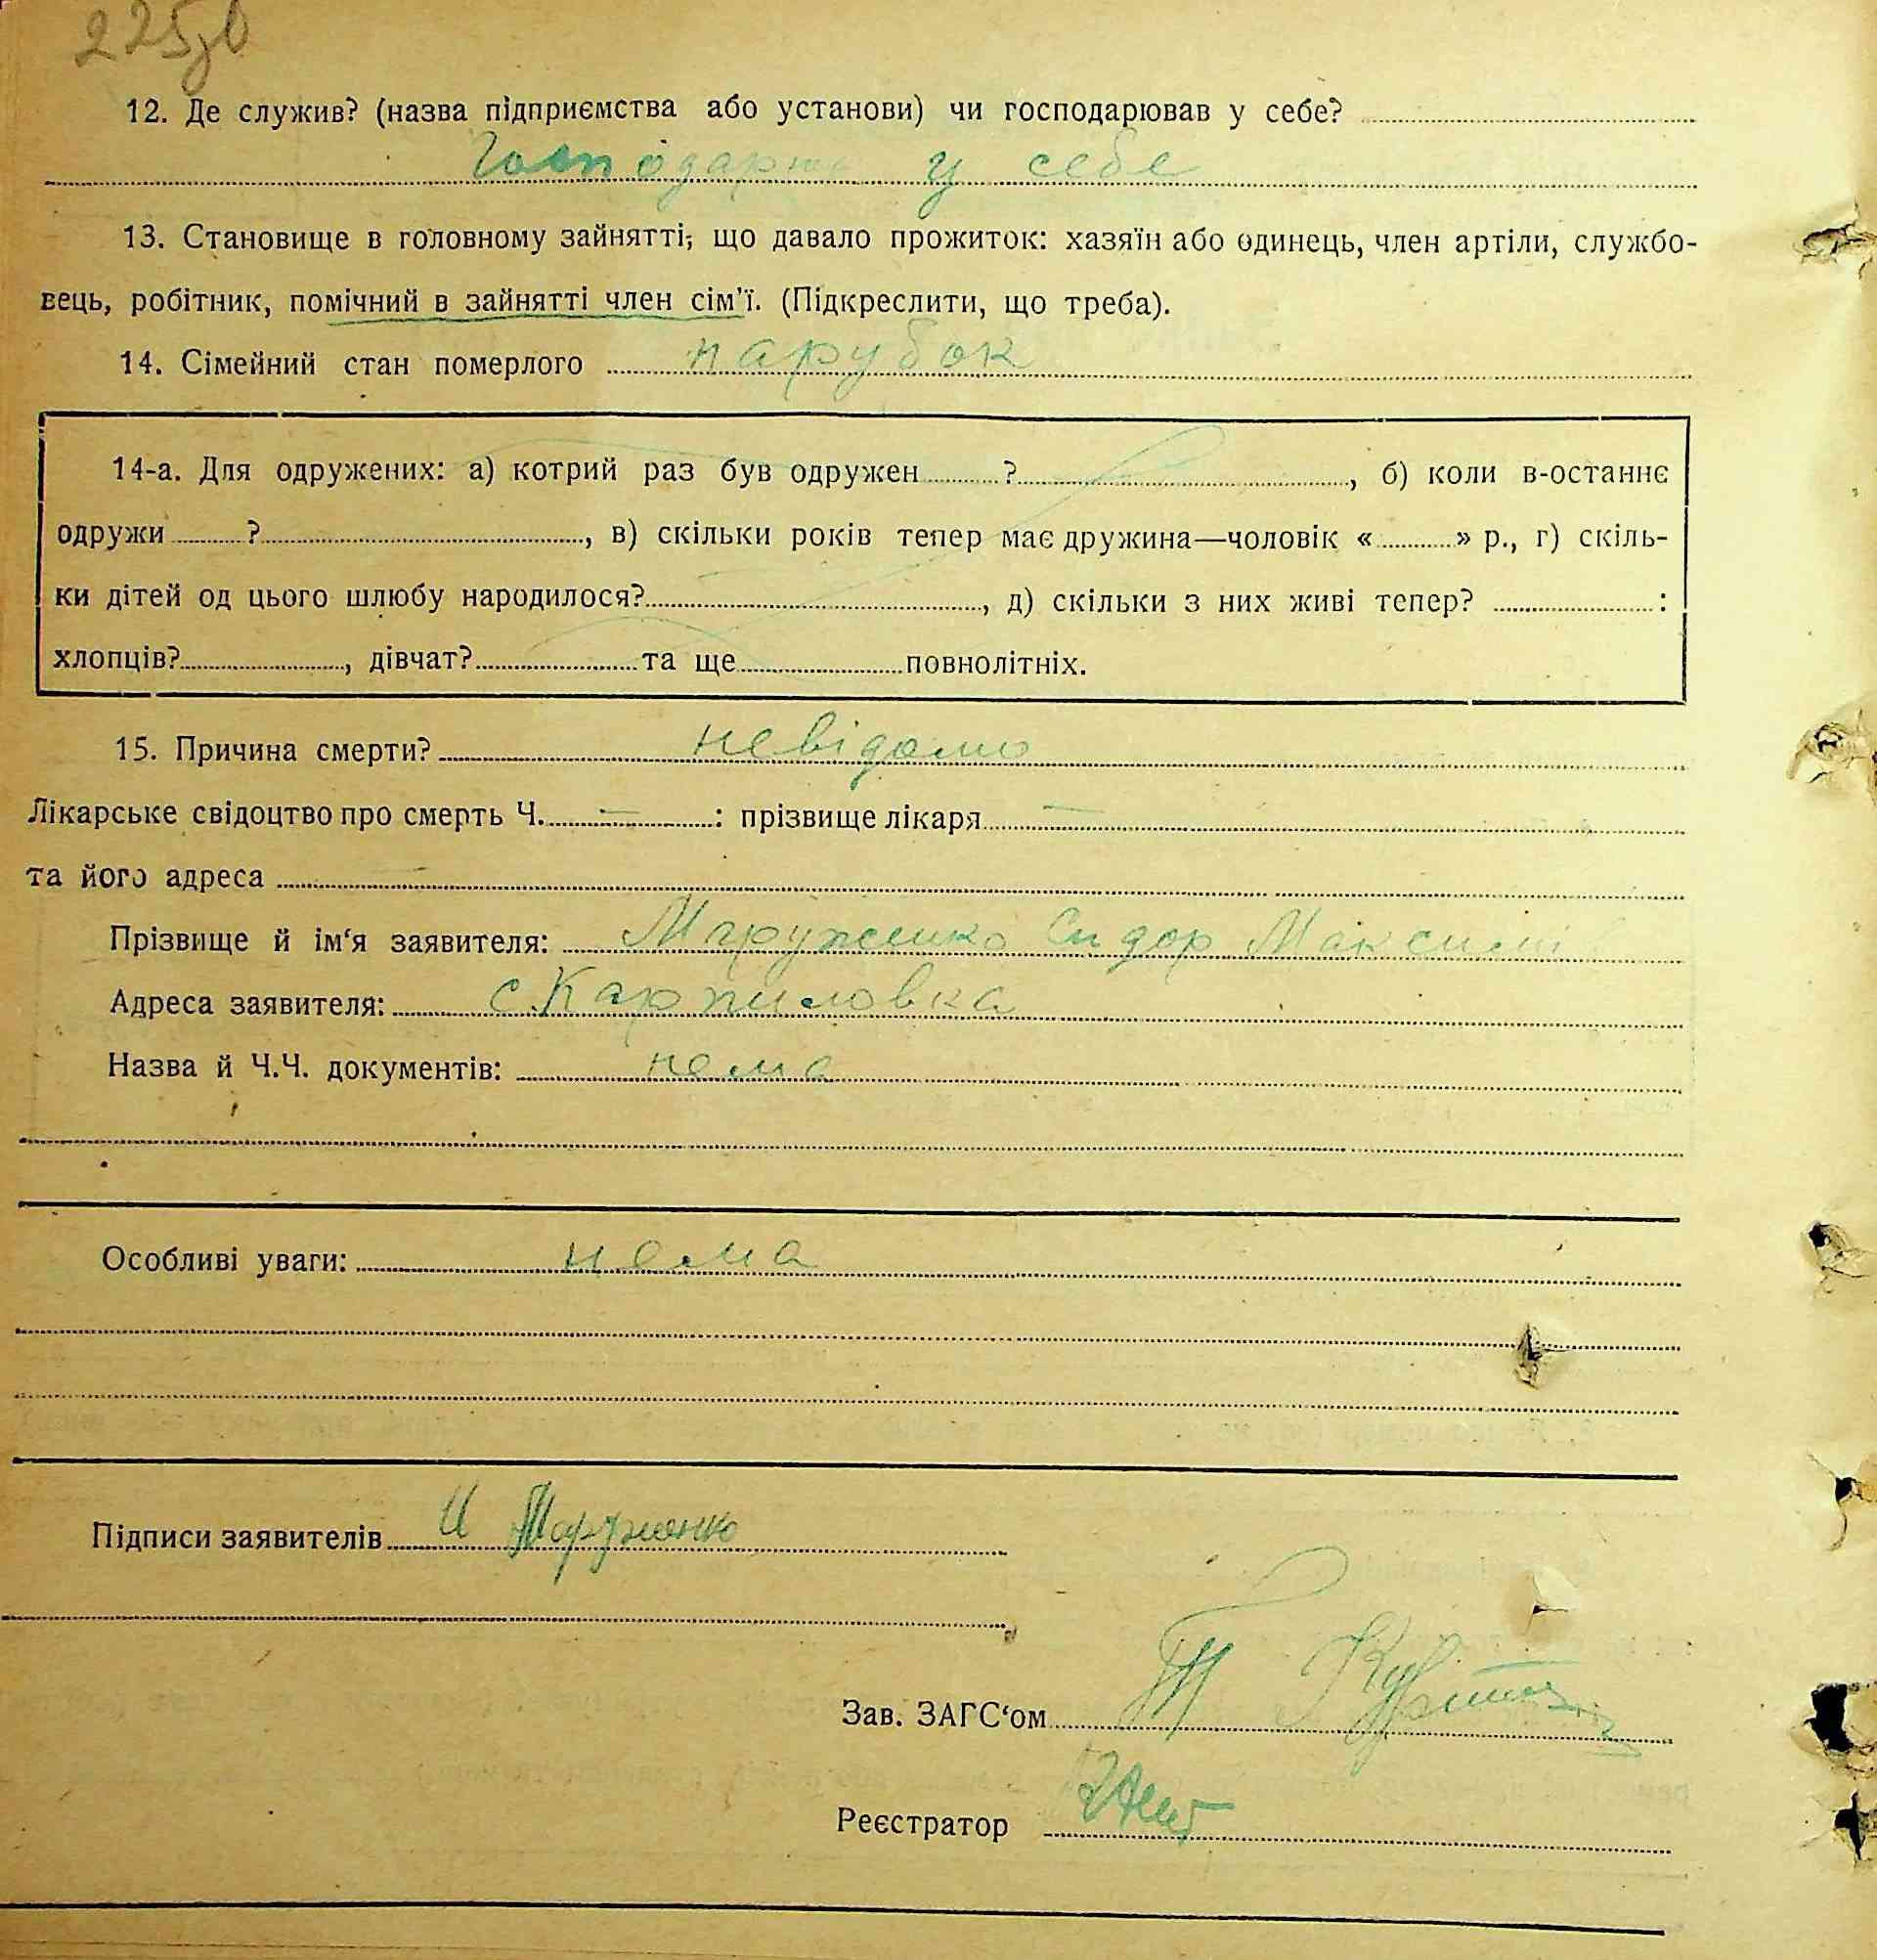 225зв
12. Де служив? (назва підприємства або установи) чи господарював у себе?
Господарює у себе
13. Становище в головному зайнятті, що давало прожиток: хазяїн або одинець, член артіли, службо-
вець, робітник, помічний в зайнятті член сім'ї. (Підкреслити, що треба).
14. Сімейний стан померлого парубок
14-а. Для одружених: а) котрий раз був одружен ?, б) коли в-останнє
одружи ?, в) скільки років тепер має дружина—чоловік « » р., г) скіль-
ки дітей од цього шлюбу народилося?, д) скільки з них живі тепер? :
хлопців?, дівчат? та ще повнолітніх.
15. Причина смерти? невідомо
Лікарське свідоцтво про смерть Ч. — : прізвище лікаря —
та його адреса
Прізвище й ім‘я заявителя: Сидор Максимів
Адреса заявителя: с Карпиловка
Назва й Ч.Ч. документів: нема
Особливі уваги: нема
Підписи заявителів
Зав. ЗАГС‘ом
Реєстратор